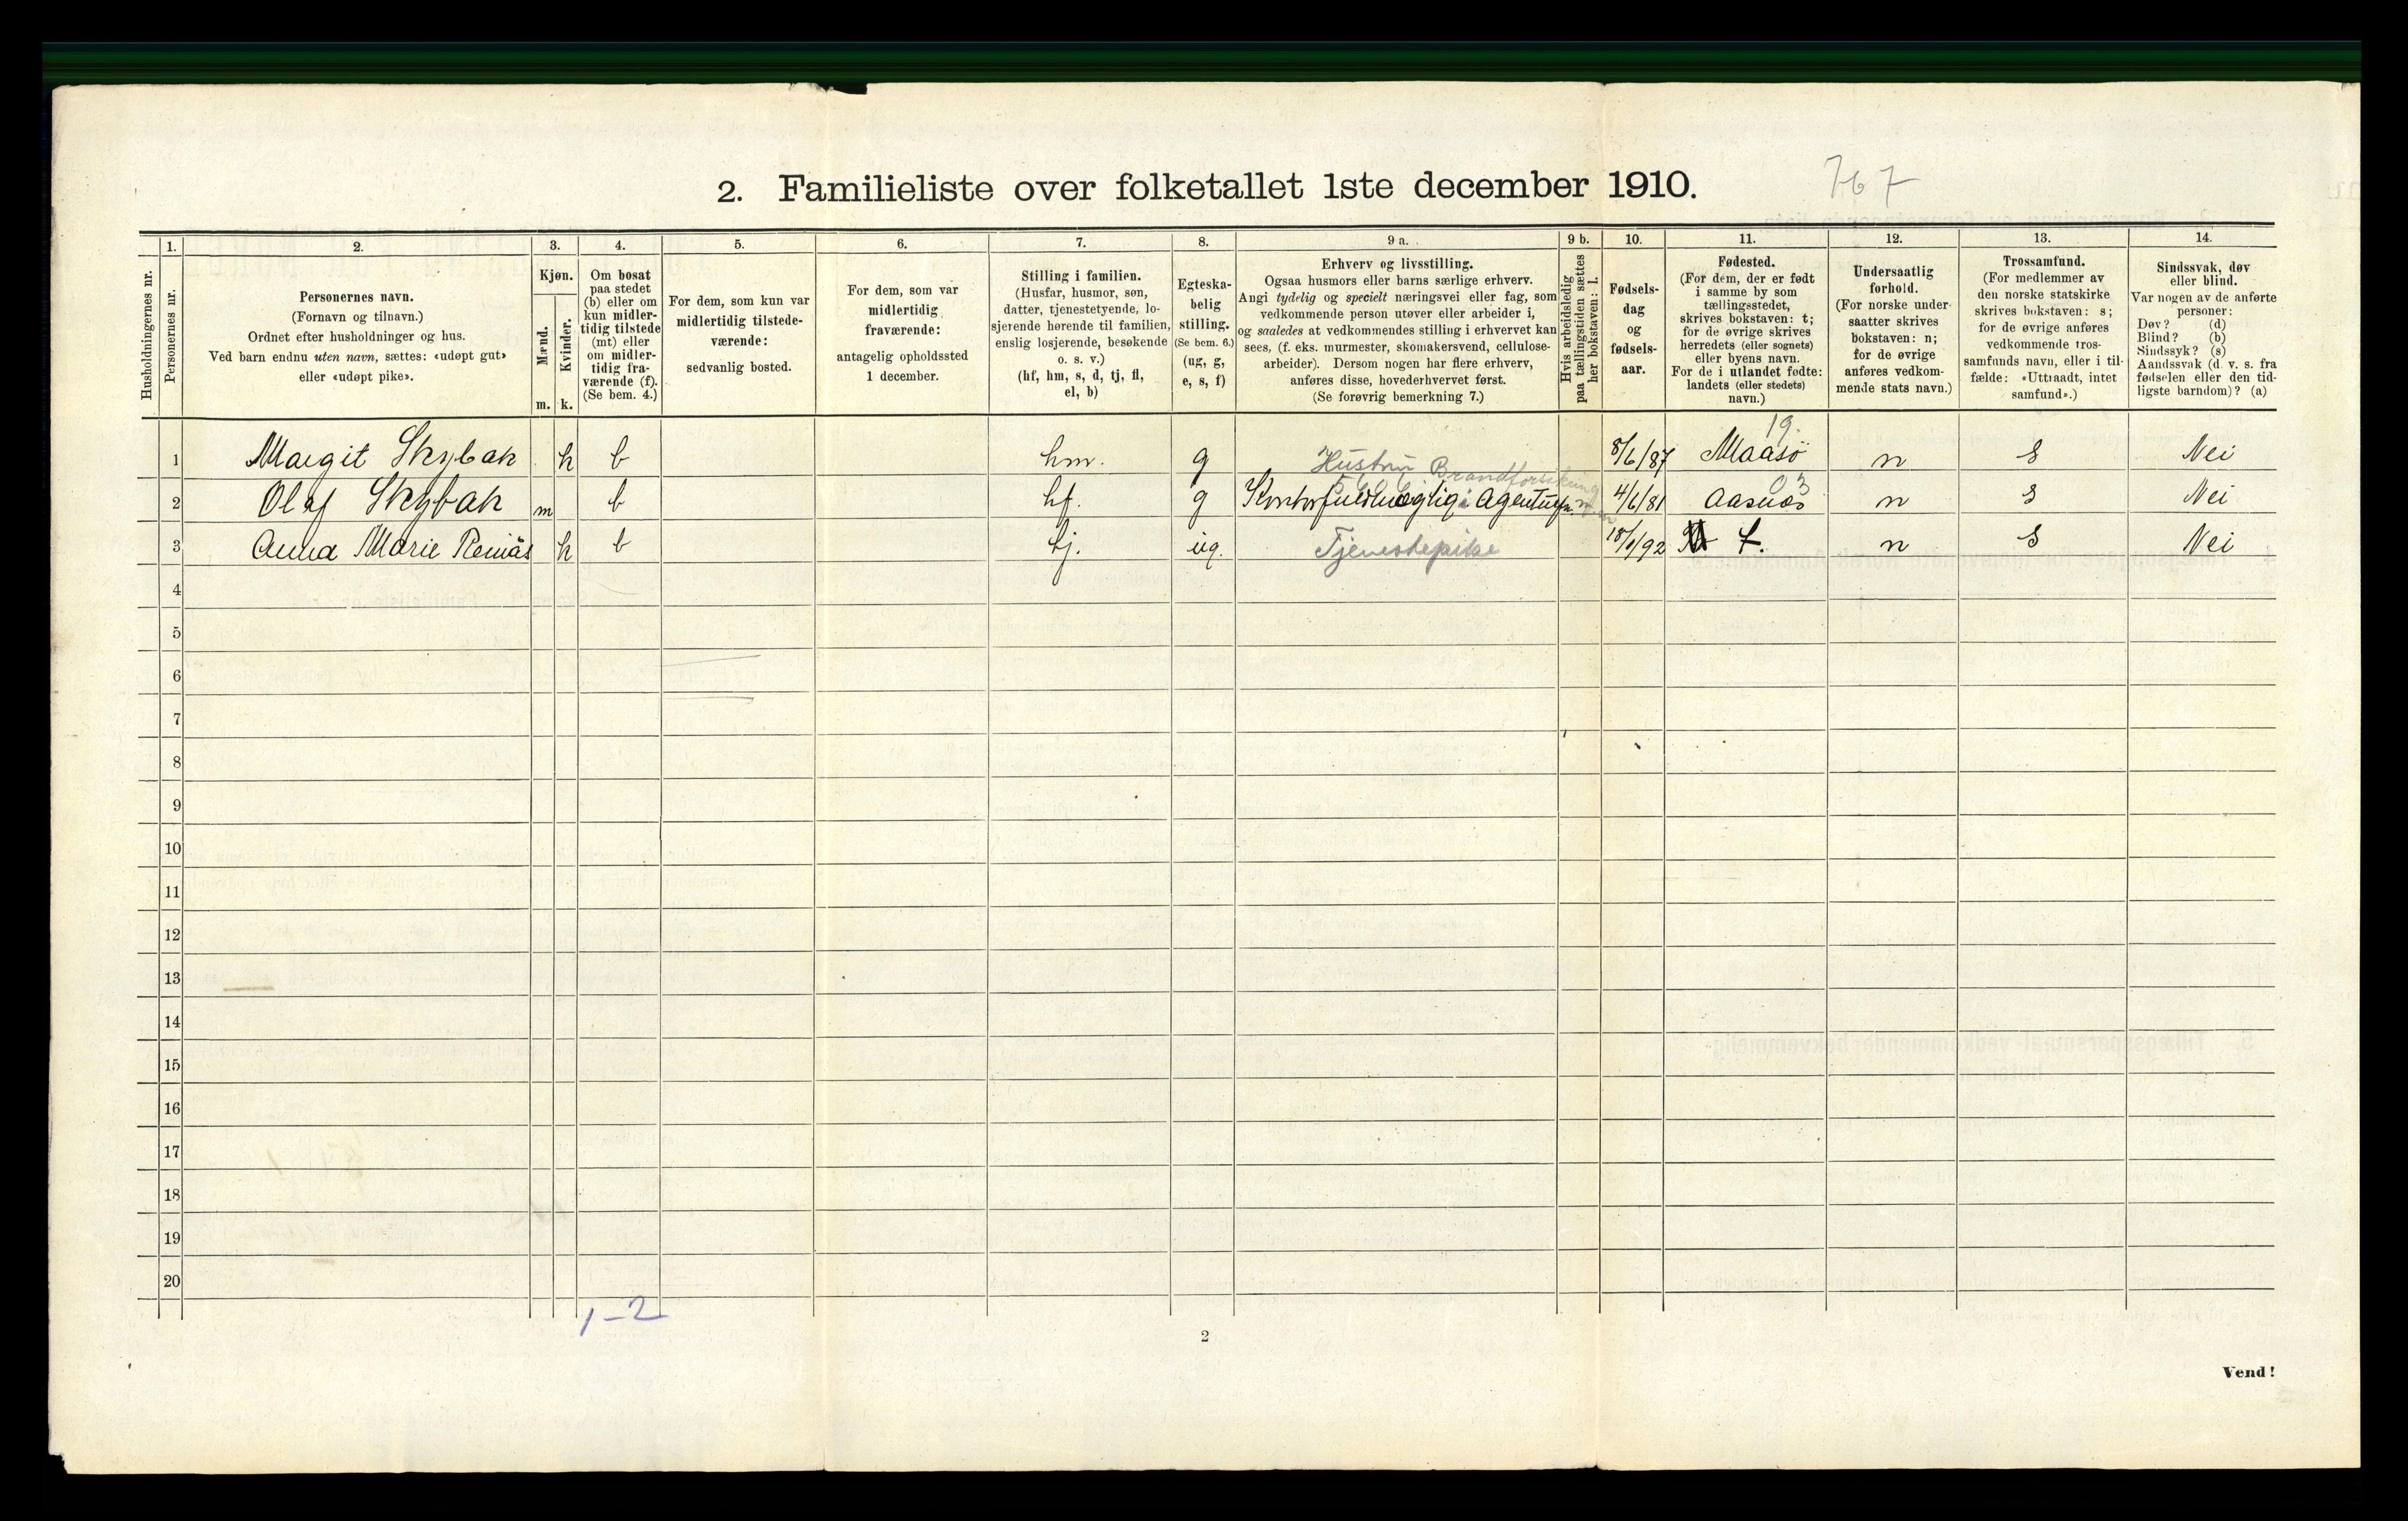 2. Familieliste over folketallet 1ste december 1910.
767
Husholdningernes nr.
1.
Personernes nr.
2.
Personernes navn.
(Fornavn og tilnavn.)
Ordnet efter husholdninger og hus.
Ved barn endnu uten navn, sættes: «udøpt gut»
eller «udøpt pike».
3.
Kjøn.
Mænd.
Kvinder.
m. k.
4.
Om bosat
paa stedet
(b) eller om
kun midler-
tidig tilstede
(mt) eller
om midler-
tidig fra-
værende (f).
(Se bem. 4.)
5.
For dem, som kun var
midlertidig tilstede-
værende:
sedvanlig bosted.
6.
For dem, som var
midlertidig
fraværende:
antagelig opholdssted
1 december.
7.
Stilling i familien.
(Husfar, husmor, søn,
datter, tjenestetyende, lo-
sjerende hørende til familien,
enslig losjerende, besøkende
o. s. v.)
(hf, hm, s, d, tj, fl,
el, b)
8.
Egteska-
belig
stilling.
(Se bem. 6.)
(ug, g,
e, s, f)
9 a.
Erhverv og livsstilling.
Ogsaa husmors eller barns særlige erhverv.
Angi tydelig og specielt næringsvei eller fag, som
vedkommende person utøver eller arbeider i,
og saaledes at vedkommendes stilling i erhvervet kan
sees, (f. eks. murmester, skomakersvend, cellulose-
arbeider). Dersom nogen har flere erhverv,
anføres disse, hovederhvervet først.
(Se forøvrig bemerkning 7.)
9 b.
Hvis arbeidsledig
paa tællingstiden sættes
her bokstaven: l.
10.
Fødsels-
dag
og
fødsels-
aar.
11.
Fødested.
(For dem, der er født
i samme by som
tællingsstedet,
skrives bokstaven: t;
for de øvrige skrives
herredets (eller sognets)
eller byens navn.
For de i utlandet fødte:
landets (eller stedets)
navn.)
12.
Undersaatlig
forhold.
(For norske under-
saatter skrives
bokstaven: n;
for de øvrige
anføres vedkom-
mende stats navn.)
13.
Trossamfund.
(For medlemmer av
den norske statskirke
skrives bokstaven: s;
for de øvrige anføres
vedkommende tros-
samfunds navn, eller i til-
fælde: «Uttraadt, intet
samfund».)
14.
Sindssvak, døv
eller blind.
Var nogen av de anførte
personer:
Døv? (d)
Blind? (b)
Sindssyk? (s)
Aandssvak (d. v. s. fra
fødselen eller den tid-
ligste barndom)? (a)
19.
1 Margit Skybak k b hm. g Hustru 8/6/87 Maasö n S Nei
Brandforsikring
03
2 Olaf Skybak m b hf. g Kontorfuldmægtig i Agenturfn. 4/6/81 Aasnæs n S Nei
3 Anna Marie Renäs k b tj. ug. Tjenestepike 18/1/92 t. n S Nei
4
5
6
7
8
9
10
11
12
13
14
15
16
17
18
19
20
1-2
2
Vend!